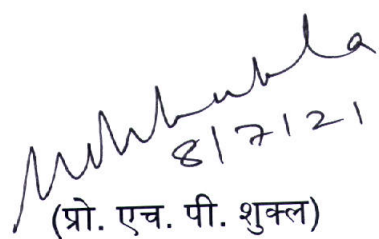 8/7/21
(प्रो. एच. पी. शुक्ल)